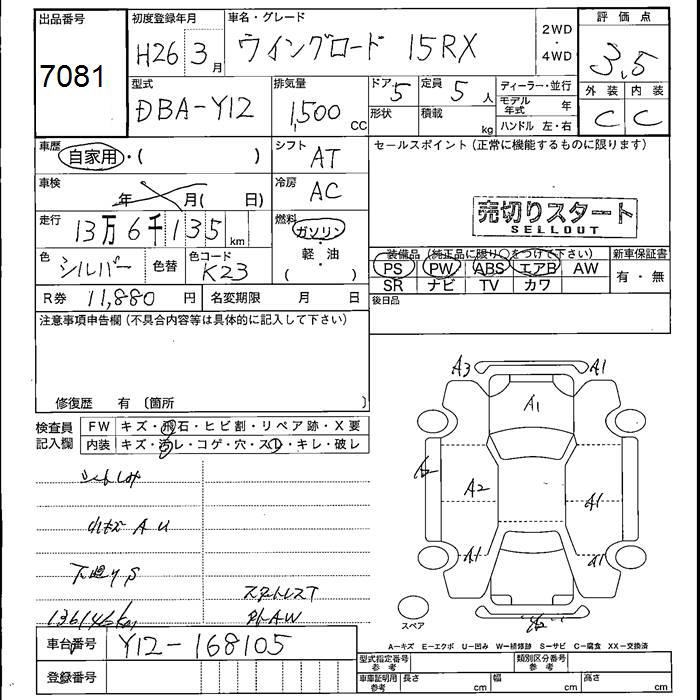 出品番号
7081
初度登録年月
H26 3月
車名・グレード
ウイングロード 15RX
2WD
・
4WD
評価点
3.5
外装 内装
C C
型式
DBA-Y12
排気量
1,500 cc
ドア 5
形状
定員 5人
積載 kg
ディーラー・並行
モデル年式 年
ハンドル 左・右
車歴
自家用・( )
シフト AT
セールスポイント(正常に機能するものに限ります)
車検
年 月( 日)
冷房 AC
売切りスタート
SELLOUT
走行
13万6千135km
燃料
ガソリン
軽・油
( )
色 シルバー
色替
色コード K23
装備品(純正品に限り○をつけて下さい)
PS PW ABS エアB AW
SR ナビ TV カワ
新車保証書
有・無
R券 11,880円
名変期限 月 日
後日品
注意事項申告欄(不具合内容等は具体的に記入して下さい)
修復歴 有 〔箇所 〕
検査員
記入欄
FW キズ・飛石・ヒビ割・リペア跡・X要
内装 キズ・汚レ・コゲ・穴・スレ・キレ・破レ
シートしみ
小キズ A U
下廻り S
スタットレスT
外AW
136146km
A3 A1
A1
A2
A2 A1
A1 A1
A2
スペア
A-キズ E-エクボ U-凹み W-補修跡 S-サビ C-腐食 XX-交換済
車台番号 Y12-168105
登録番号
型式指定番号
参考
類別区分番号
参考
車庫証明用
参考
長さ cm
幅 cm
高さ cm